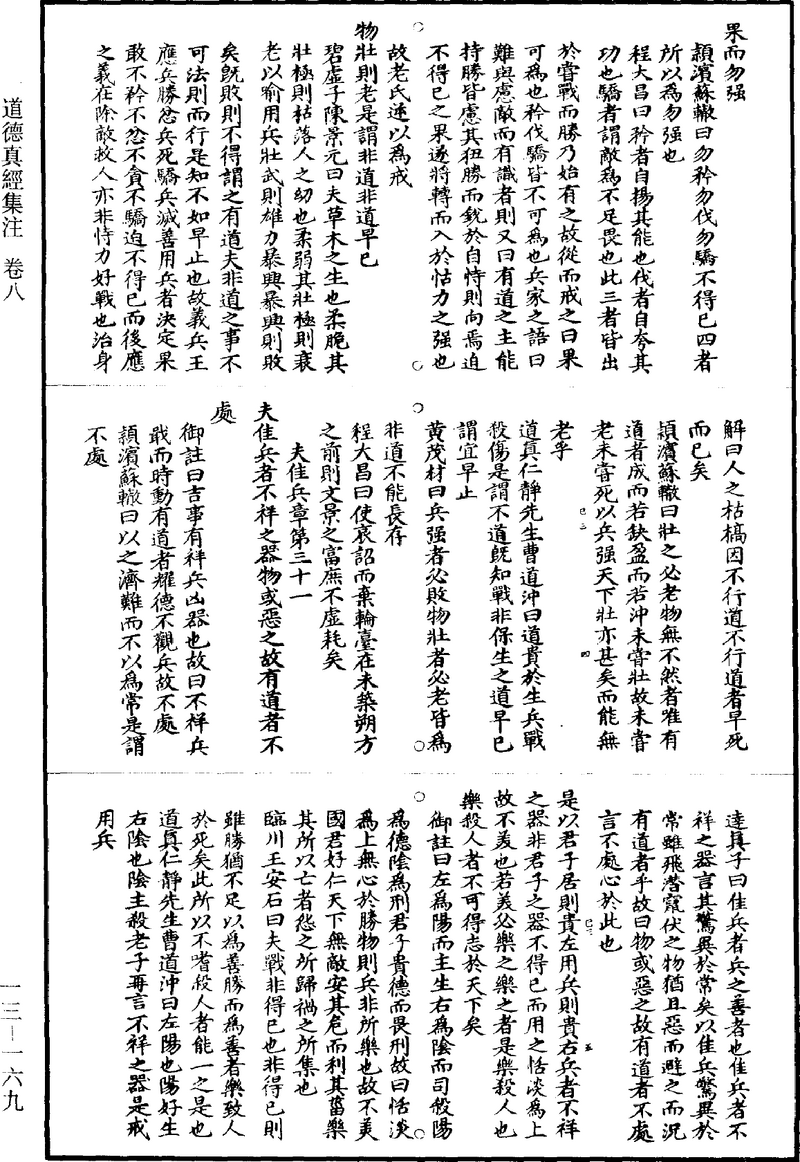 果而勿强
潁濱蘇轍曰勿矜勿伐勿驕不得已四者
所以爲勿强也
程大昌曰矜者自揚其能也伐者自夸其
功也驕者謂敵爲不足畏也此三者皆出
於嘗戰而勝乃始有之故從而戒之曰果
可爲也矜伐驕皆不可爲也兵家之語曰
難與慮敵而有識者則又曰有道之主能
持勝皆慮其狃勝而銳於自恃則向焉迫
不得已之果遂將轉而入於怙力之强也
故老氏遂以爲戒
物壯則老是謂非道非道早已
碧虛子陳景元曰夫草木之生也柔脆其
壯極則枯落人之幼也柔弱其壯極則衰
老以喻用兵壯武則雄力暴興暴興則敗
矣旣敗則不得謂之有道夫非道之事不
可法則而行是知不如早止也故義兵王
應兵勝忿兵死驕兵滅善用兵者決定果
敢不矜不忿不貪不驕迫不得已而後應
之義在除敵救人亦非恃力好戰也治身
解曰人之枯槁因不行道不行道者早死
而已矣
潁濱蘇轍曰壯之必老物無不然者唯有
道者成而若缺盈而若沖未嘗壯故未嘗
老未嘗死以兵强天下壯亦甚矣而能無
老乎
道真仁靜先生曹道沖曰道貴於生兵戰
殺傷是謂不道旣知戰非保生之道早已
謂宜早止
黃茂材曰兵强者必敗物壯者必老皆爲
非道不能長存
程大昌曰使哀詔而棄輪臺在未築朔方
之前則文景之富庶不虛耗矣
夫佳兵章第三十一
夫佳兵者不祥之器物或惡之故有道者不
處
御註曰吉事有祥兵凶器也故曰不祥兵
戢而時動有道者耀德不觀兵故不處
潁濱蘇轍曰以之濟難而不以爲常是謂
不處
達真子曰佳兵者兵之善者也佳兵者不
祥之器言其驚異於常矣以佳兵驚異於
常雖飛潛竄伏之物猶且惡而避之而況
有道者乎故曰物或惡之故有道者不處
言不處心於此也
是以君子居則貴左用兵則貴右兵者不祥
之器非君子之器不得已而用之恬淡爲上
故不美也若美必樂之樂之者是樂殺人也
樂殺人者不可得志於天下矣
御註曰左爲陽而主生右爲陰而司殺陽
爲德陰爲刑君子貴德而畏刑故曰恬淡
爲上無心於勝物則兵非所樂也故不美
國君好仁天下無敵安其危而利其菑樂
其所以亡者怨之所歸禍之所集也
臨川王安石曰夫戰非得已也非得已則
雖勝猶不足以爲善勝而爲善者樂致人
於死矣此所以不嗜殺人者能一之是也
道真仁靜先生曹道沖曰左陽也陽好生
右陰也陰主殺老子再言不祥之器是戒
用兵
道德真經集注　卷八
一三—一六九